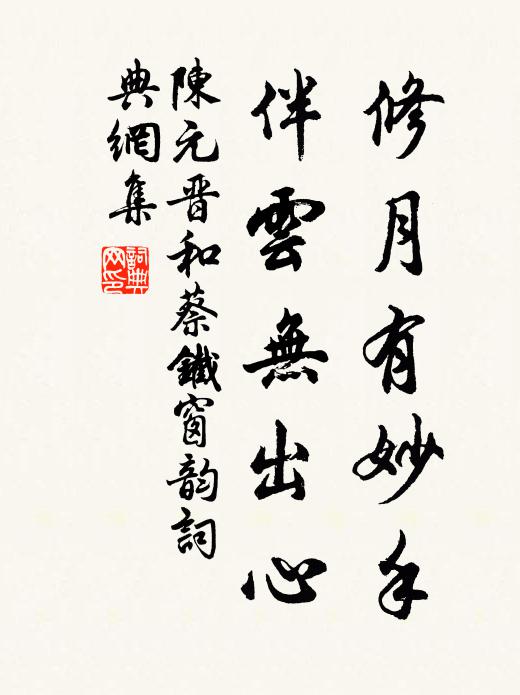 修月有妙手
伴雲無出心
陳元晋和蔡鐵窗韵詞
典網集
詞典網印